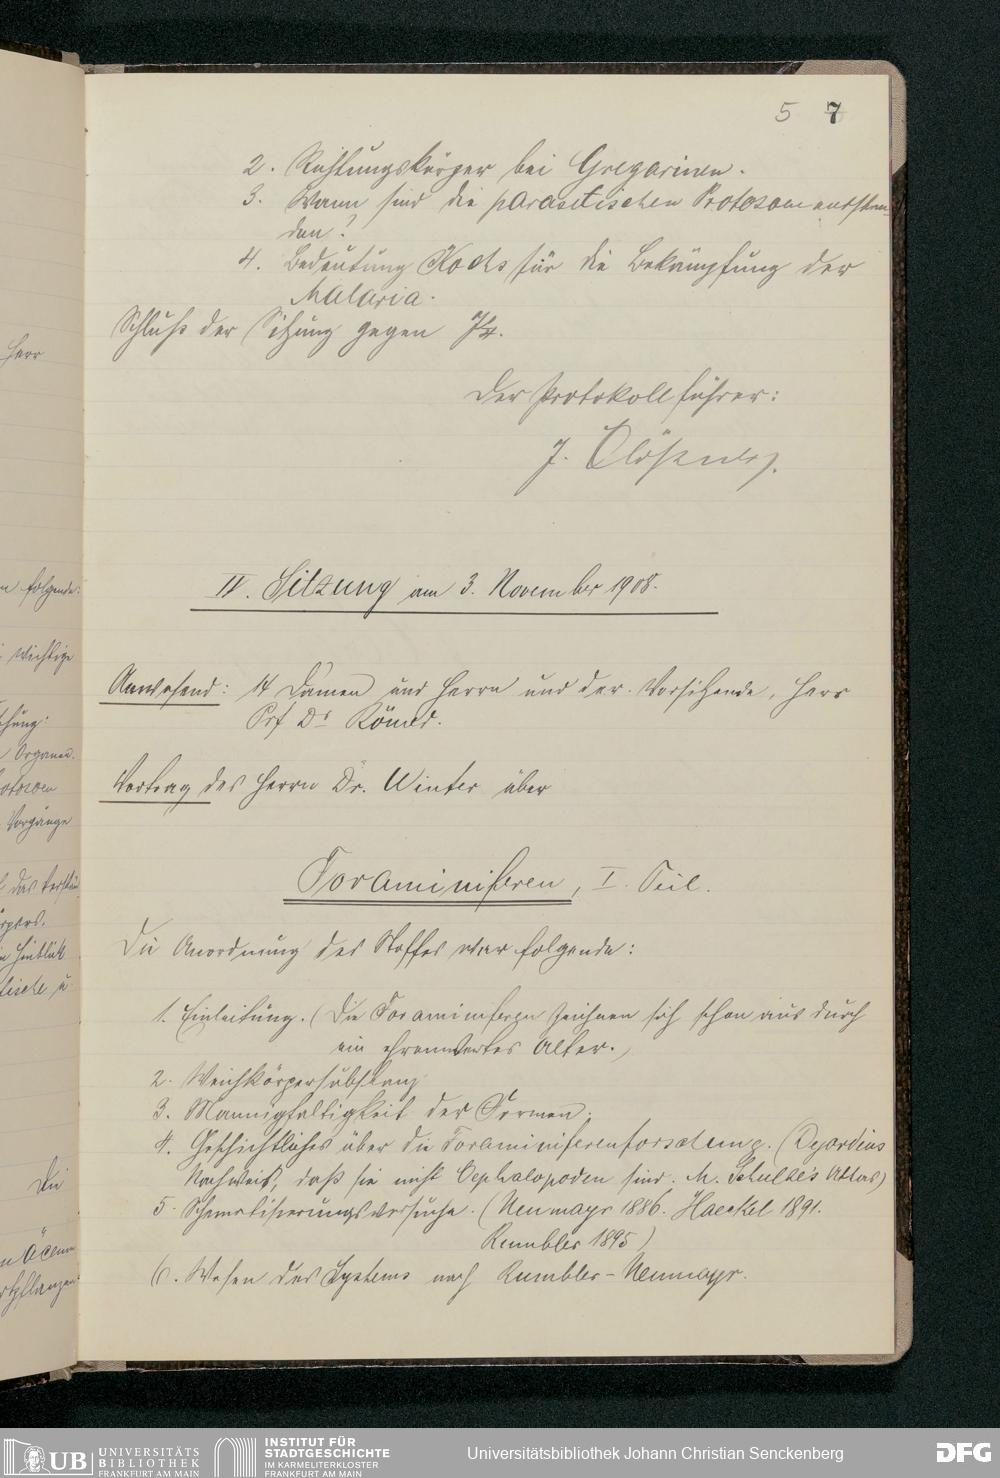 5 7
2. Richtungskörper bei Gregarinen.
3. Wann sind die parasitischen Protozoen entstan-
den?
4. Bedeutung Kochs für die Bekämpfung der
Malaria.
Schluß der Sitzung gegen
Der Protokollführer:
J.
IV. Sitzung am 3. November 1908.
Anwesend: 14 Damen und Herrn und der Vorsitzende, Herr
Prf Dr Römer.
Vortrag des Herrn Dr. Winter über
Foraminiferen, I. Teil.
Die Anordnung des Stoffes war folgende:
1. Einleitung. (Die Foraminiferen zeichnen sich schon aus durch
ein ehrenwertes Alter.)
2. Weichkörpersubstanz
3. Mannigfaltigkeit der Formen.
4. Geschichtliches über die Foraminiferenforschung. (Dujardins
Nachweis, daß sie nicht Cephalopoden sind. M. Schultzes Atlas)
5. Schematisierungsversuche. (Neumayr 1886. Haeckel 1891.
Rumbler 1895)
6. Wesen des Systems nach Rumbler-Neumayr.
Herr
folgende:
wichtige
Organen.
Vorgänge
Hinblick
Die
UB UNIVERSITÄTS
BIBLIOTHEK
FRANKFURT AM MAIN
INSTITUT FÜR
STADTGESCHICHTE
IM KARMELITERKLOSTER
FRANKFURT AM MAIN
Universitätsbibliothek Johann Christian Senckenberg
DFG